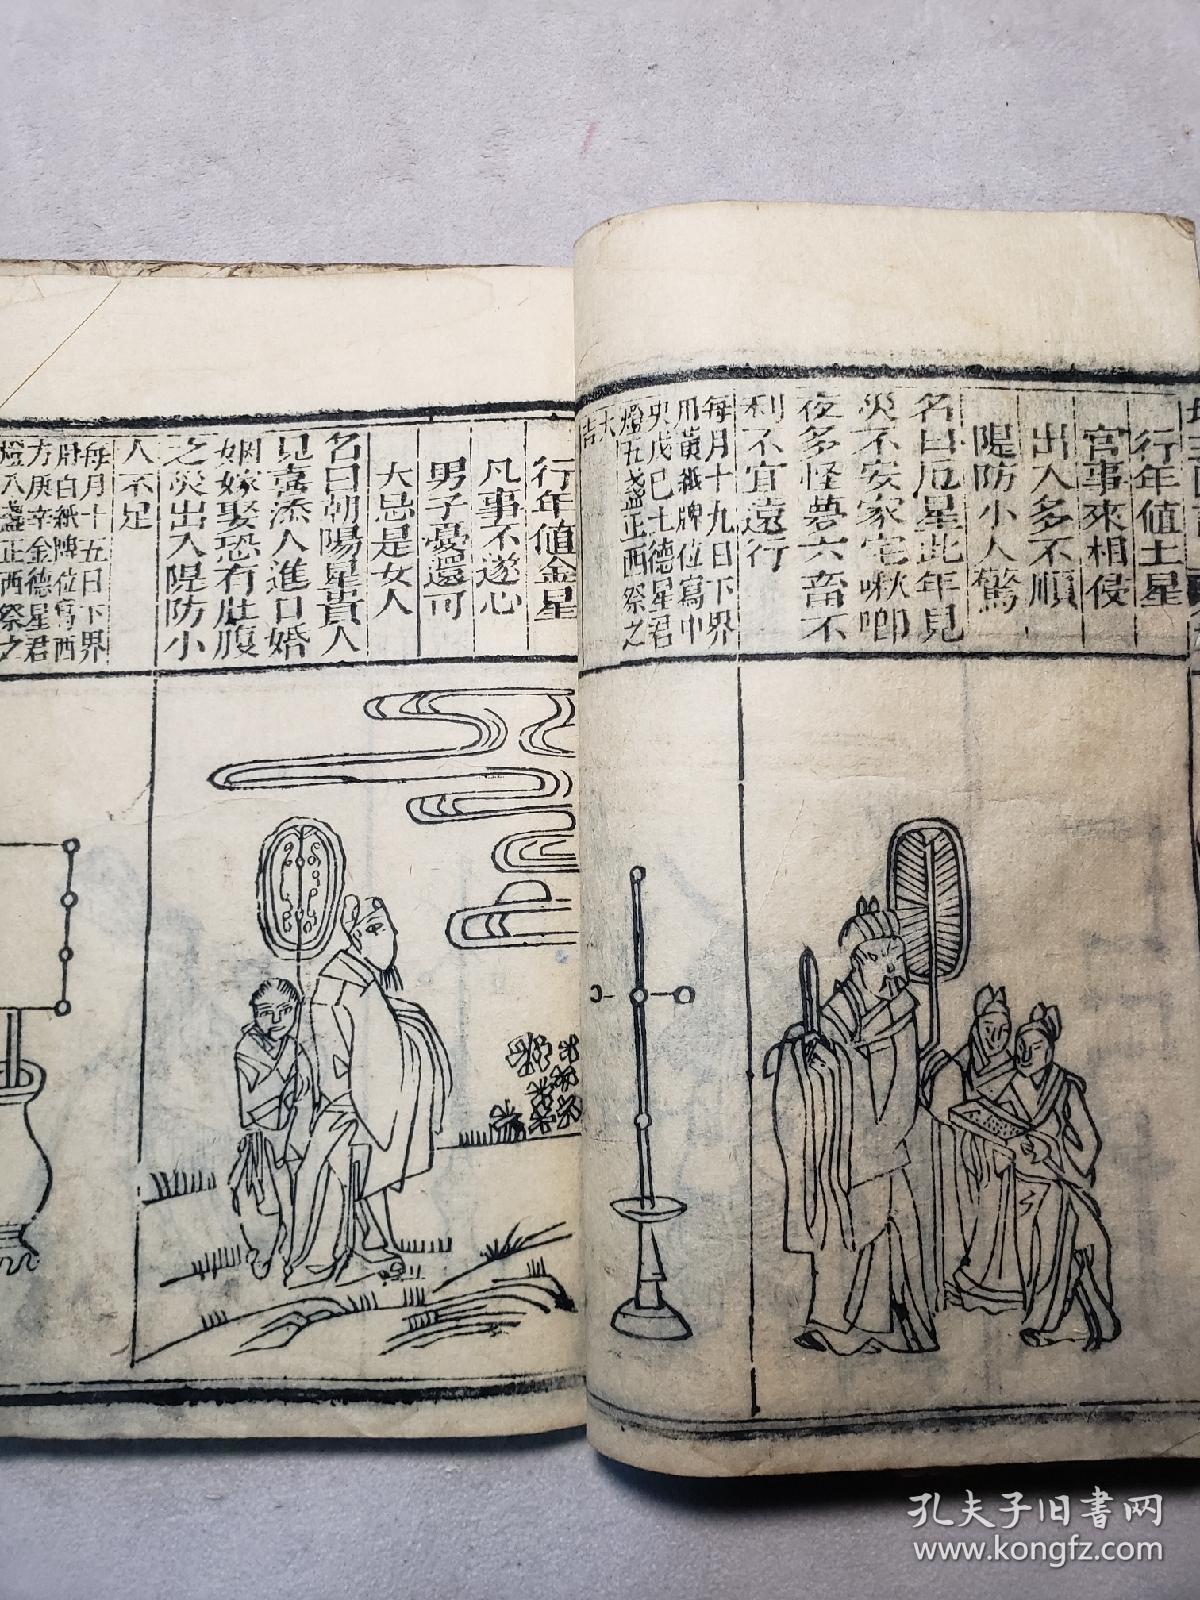 行年值土星
官事來相侵
出入多不順
隄防小人驚
名曰厄星此年見
災不安家宅啾唧
夜多怪夢六畜不
利不宜遠行
每月十九日下界
用黃紙牌位寫中
央戊巳土德星君
燈五盞正西祭之
大吉
行年值金星
凡事不遂心
男子憂還可
大忌是女人
名曰朝陽星貴人
見喜添人進口婚
姻嫁娶恐有肚腹
之災出入隄防小
人不足
每月十五日下界
用白紙牌位寫西
方庚辛金德星君
燈八盞正西祭之
孔夫子旧书网
www.kongfz.com